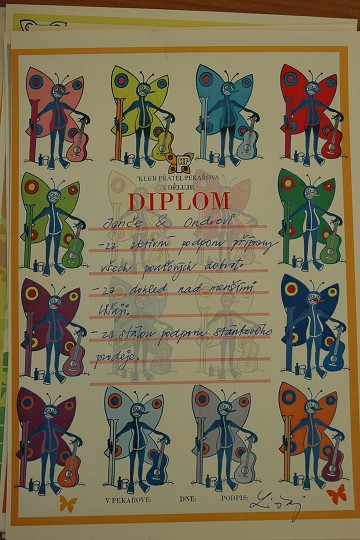 KP
KLUB PŘÁTEL PEKAŘOVA
UDĚLUJE
DIPLOM
Janče & Ondrovi
- za aktivní podporu přípravy
všech pouťových dobrot.
- za dohled nad menšími
- za stálou podporu stánkového
prodeje.
V PEKAŘOVĚ: DNE: PODPIS: